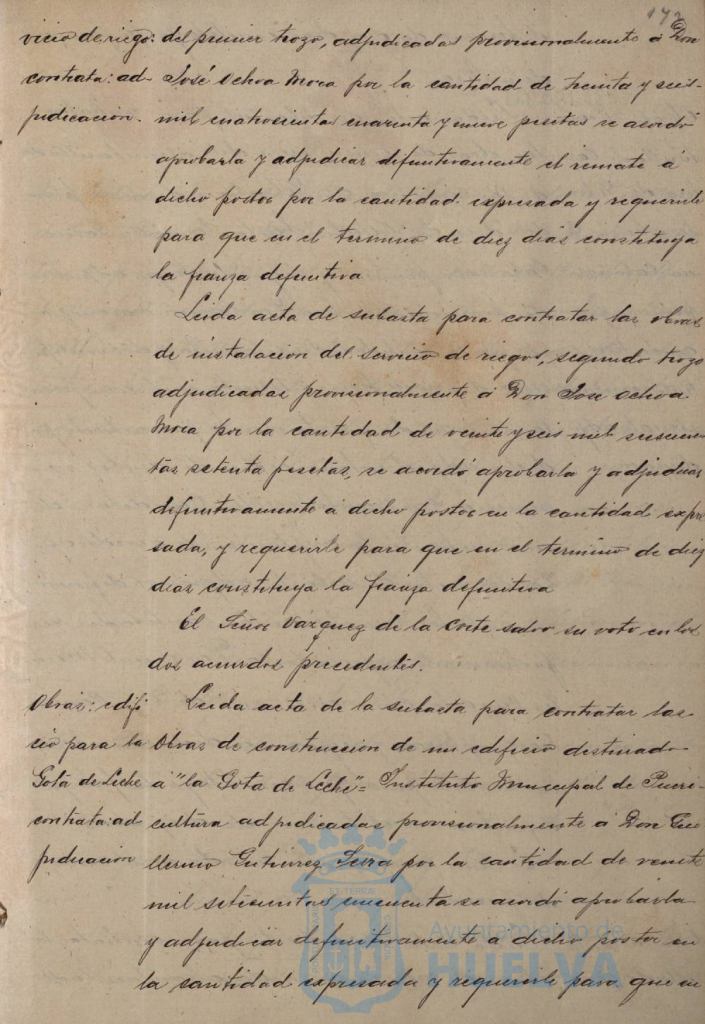 vicio de riego: del primer trozo, adjudicadas provisionalmente á Don
contrata: ad- José Ochoa Mora por la cantidad de treinta y seis-
judicación. mil cuatrocientas cuarenta y nueve pesetas se acordó
aprobarla y adjudicar definitivamente el remate á
dicho postor por la cantidad expresada y requerirle
para que en el termino de diez dias constituya
la fianza definitiva
Leida acta de subasta para contratar las obras
de instalacion del servicio de riegos, segundo trozo
adjudicadas provisionalmente á Don Jose Ochoa
Mora por la cantidad de veinte y seis mil suscien
tas setenta pesetas, se acordó aprobarla y adjudicar
definitivamente á dicho postor en la cantidad expre
sada, y requerirle para que en el termino de diez
dias constituya la fianza definitiva
El Señor Vazquez de la Corte salvo su voto en los
dos acuerdos precedentes.
Obras: edifi Leida acta de la subasta para contratar las
cio para la Obras de construccion de un edificio destinado
Gota de Leche á "la Gota de Leche" = Instituto Municipal de Pueri-
contrata: ad cultura adjudicadas provisionalmente á Don Gui
judicacion llermo Gutierrez Serra por la cantidad de veinte
mil setecientas cincuenta se acordó aprobarla
y adjudicar definitivamente a dicho postor en
la cantidad expresada y requerirle para que en
Ayuntamiento de
HUELVA